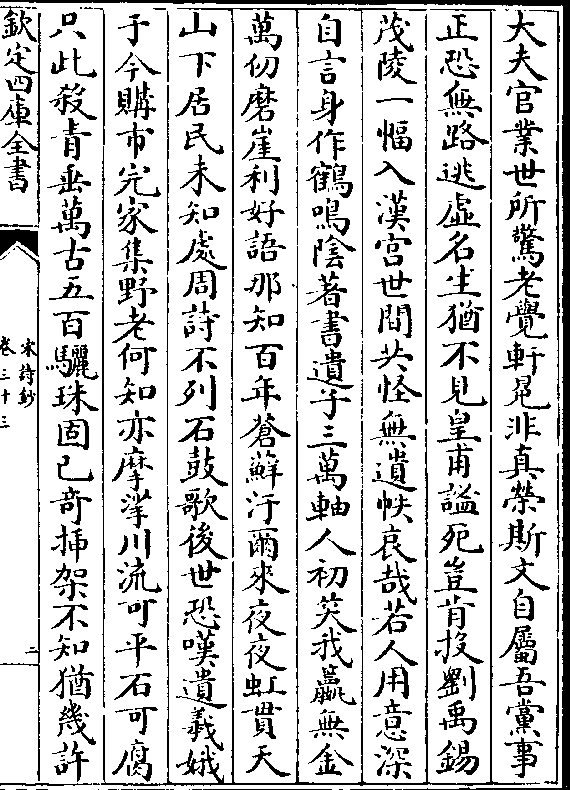 大夫官業世所驚老覺軒冕非真榮斯文自屬吾黨事
正恐無路逃虛名生猶不見皇甫謐死豈肯投劉禹錫
茂陵一幅入漢宮世間共怪無遺帙哀哉若人用意深
自言身作鶴鳴陰著書遺子三萬軸人初笑我羸無金
萬仞磨崖利好語那知百年蒼蘚汙爾來夜夜虹貫天
山下居民未知處周詩不列石鼓歌後世恐嘆遺義娥
于今購市完家集野老何知亦摩挲川流可平石可腐
只此殺青垂萬古五百驪珠固已奇揷架不知猶幾許
欽定四庫全書
宋詩鈔
卷三十三
二